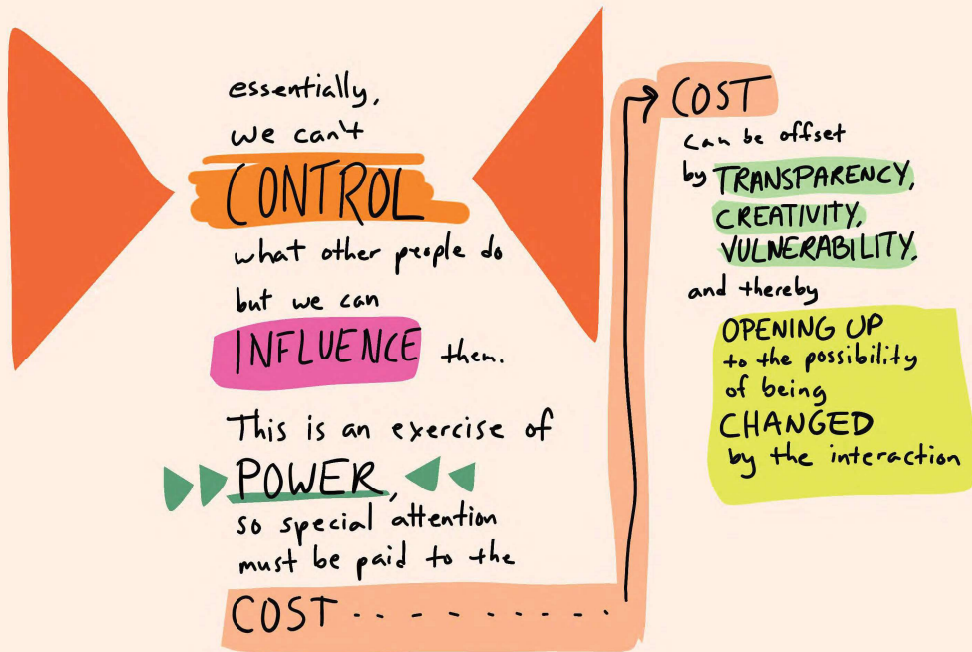 essentially,
we can't
CONTROL
what other people do
but we can
INFLUENCE them.
This is an exercise of
POWER,
so special attention
must be paid to the
COST . . . . . . . . .
COST
can be offset
by TRANSPARENCY,
CREATIVITY,
VULNERABILITY,
and thereby
OPENING UP
to the possibility
of being
CHANGED
by the interaction